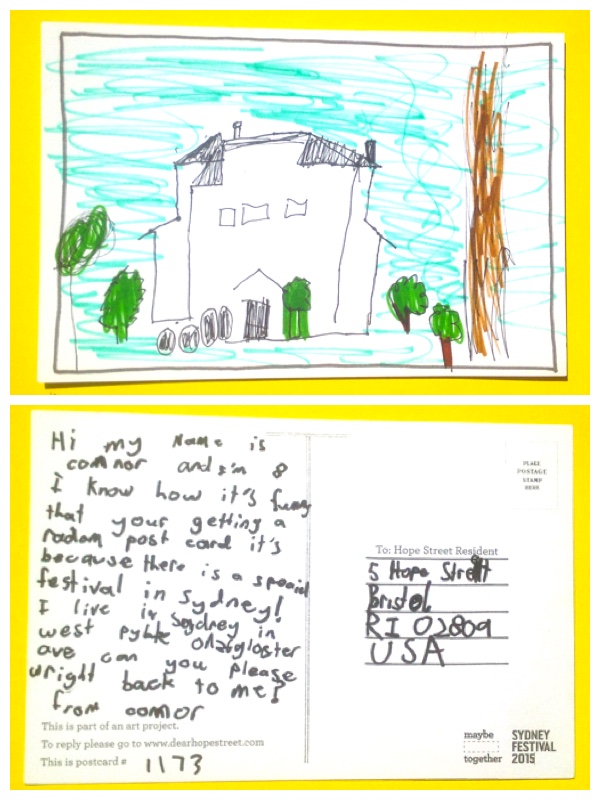 Hi my Name is
connor and i'm 8
I know how it's funy
that your getting a
radom post card it's
because there is a special
festival in sydney!
I live in Sydney in
west pymble
ave can you please
wright back to me!
from connor
This is part of an art project.
To reply please go to www.dearhopestreet.com
This is postcard # 1173
PLACE
POSTAGE
STAMP
HERE
To: Hope Street Resident
5 Hope Street
Bristol
RI 02809
USA
maybe
together
SYDNEY
FESTIVAL
2015